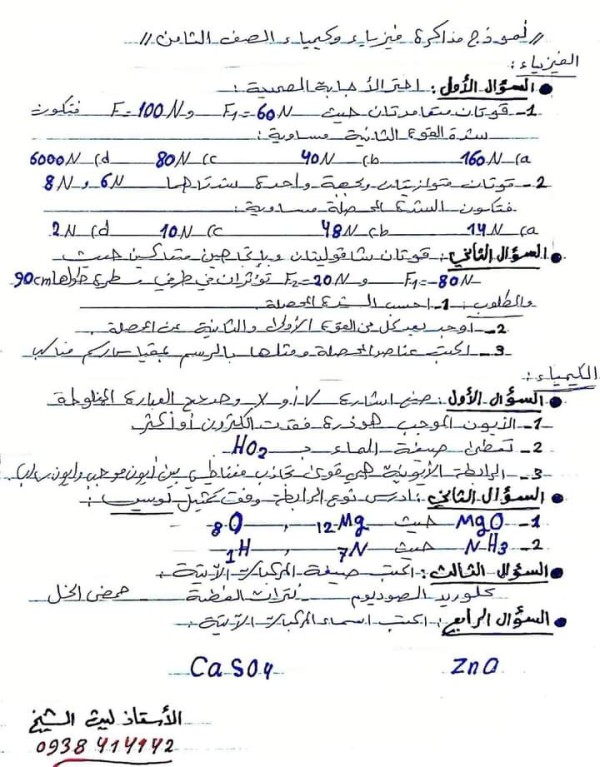 // نموذج مذاكرة فيزياء وكيمياء الصف الثامن //
الفيزياء:
● السؤال الأول: اختر الأجابة الصحيحة:
1- قوتان متعامدتان حيث F₁=60N و F=100N فتكون
شدة القوة الثانية مساوية:
a) 160N b) 40N c) 80N d) 6000N
2- قوتان متوازيتان وبجهة واحدة شدتاهما 6N و 8N
فتكون الشدة المحصلة مساوية:
a) 14N b) 48N c) 10N d) 2N
● السؤال الثاني: قوتان شاقوليتان وباتجاهين متعاكسين حيث
F₁=80N و F₂=20N تؤثران في طرفي مسطرة طولها 90cm
والمطلوب: 1- احسب الشدة المحصلة.
2- اوجد بعد كل من القوة الأولى والثانية عن المحصلة.
3- اكتب عناصر المحصلة ومثلها بالرسم بمقياس رسم مناسب
الكيمياء:
● السؤال الأول: ضع اشارة √ أو X وصحح العبارة المغلوطة
1- الأيون الموجب هو ذرة فقدت الكترون أو أكثر
2- تعطى صيغة الماء بـ HO₂
3- الرابطة الأيونية هي قوى تجاذب مغناطيسي بين أيون موجب وأيون سالب.
● السؤال الثاني: ادرس نوع الرابطة وفق تمثيل لويس:
1- MgO حيث ₁₂Mg , ₈O
2- NH₃ حيث ₇N , ₁H
● السؤال الثالث: اكتب صيغة المركبات الآتية:
كلوريد الصوديوم نترات الفضة حمض الخل
● السؤال الرابع: اكتب اسماء المركبات الآتية:
ZnO CaSO₄
الأستاذ ليث الشيخ
0938 414142